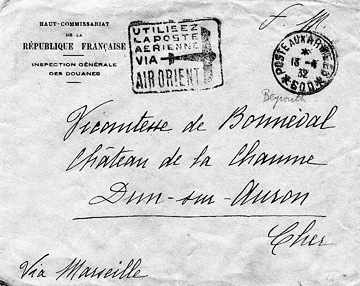 HAUT-COMMISSARIAT
DE LA
RÉPUBLIQUE FRANÇAISE
INSPECTION GÉNÉRALE
DES DOUANES
UTILISEZ
LA POSTE
AERIENNE
VIA
AIR ORIENT
F. M.
*POSTE AUX ARMEES*
*
13-4
32
600
Beyrouth
Vicomtesse de Bonneval
Château de la Chaume
Dun-sur-Auron
Cher
Via Marseille